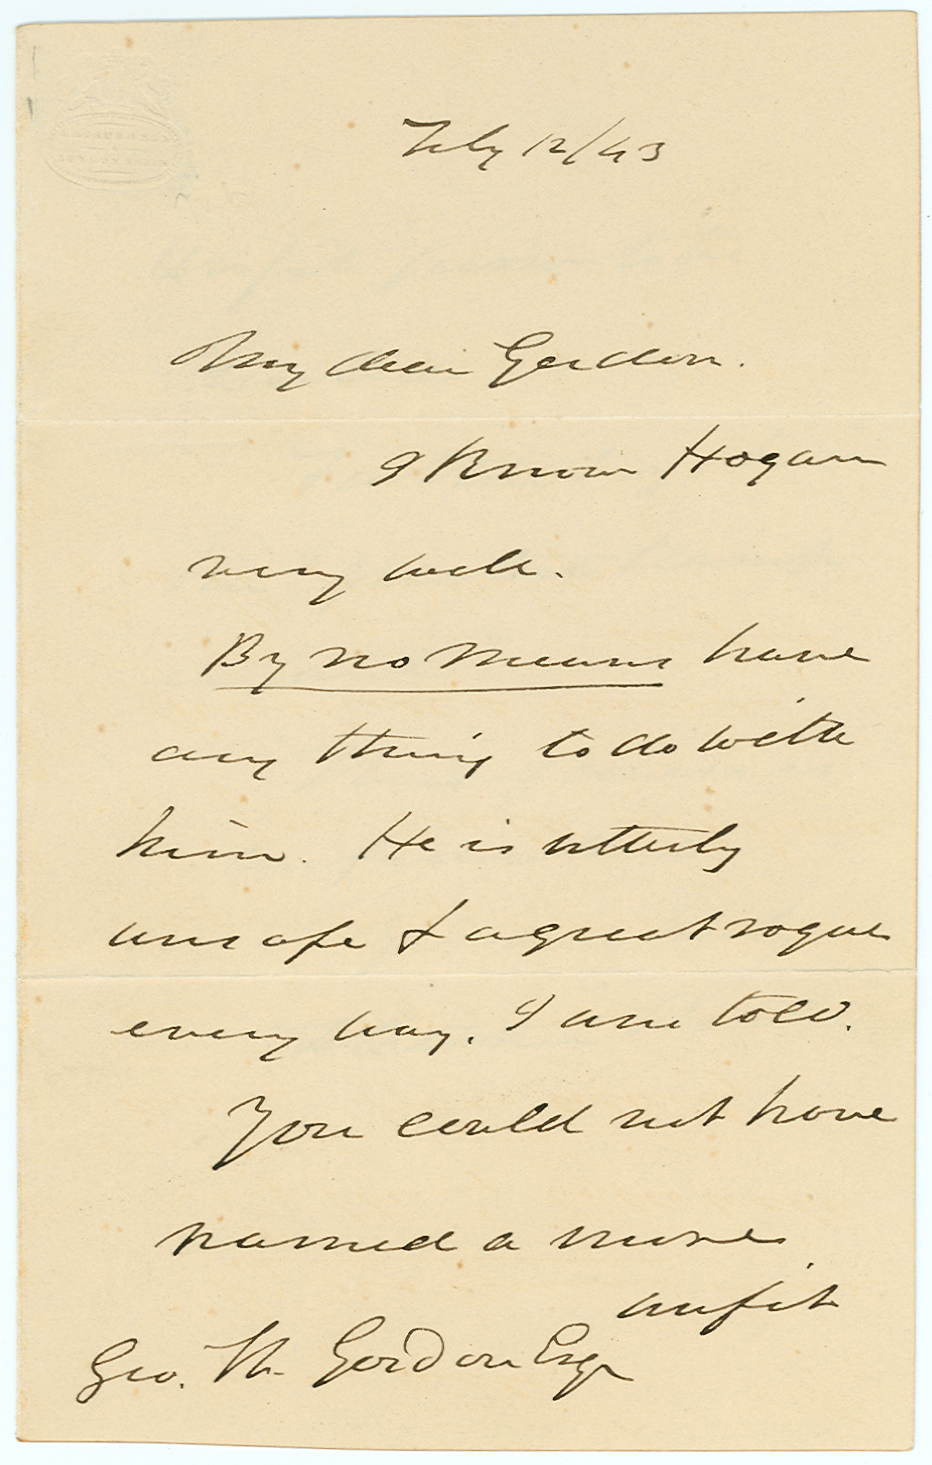 Feby 12/43
My dear Gordon.
I Know Hogan
very well.
By no Means have
any thing to do with
him. He is utterly
unsafe & a great rogue
every way, I am told.
You could not have
named a more
unfit
Geo. Wm. Gordon Esqr